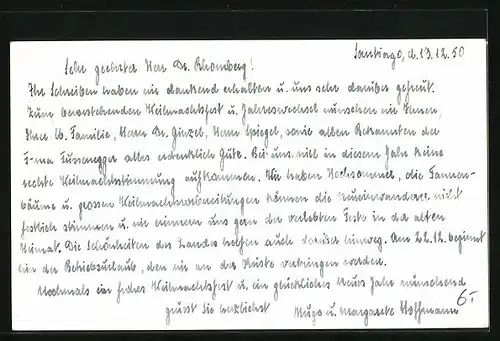 Santiago, d. 13.12.50
Sehr geehrter Herr Dr. Rhomberg!
Ihr Schreiben haben wir dankend erhalten u. uns sehr darüber gefreut.
Zum bevorstehenden Weihnachtsfest u. Jahreswechsel wünschen wir Ihnen,
Ihrer lb. Familie, Herrn Dr. Ginzel, Herrn Spiegel, sowie allen Bekannten der
F-ma Fussenegger alles erdenklich Gute. Bei uns will in diesem Jahr keine
rechte Weihnachtsstimmung aufkommen. Wir haben Hochsommer, die Tannen-
bäume u. grossen Weihnachtsvorbereitungen können die Neueinwanderer nicht
festlich stimmen u. wir erinnern uns gern der verlebten Feste in der alten
Heimat. Die Schönheiten des Landes helfen auch darüber hinweg. Am 22.12. beginnt
für der Betriebsurlaub, den wir an der Küste verbringen werden.
Nochmals ein frohes Weihnachtsfest u. ein glückliches Neues Jahr wünschend
grüsst Sie herzlichst Hugo u. Margarete Hoffmann
6.-